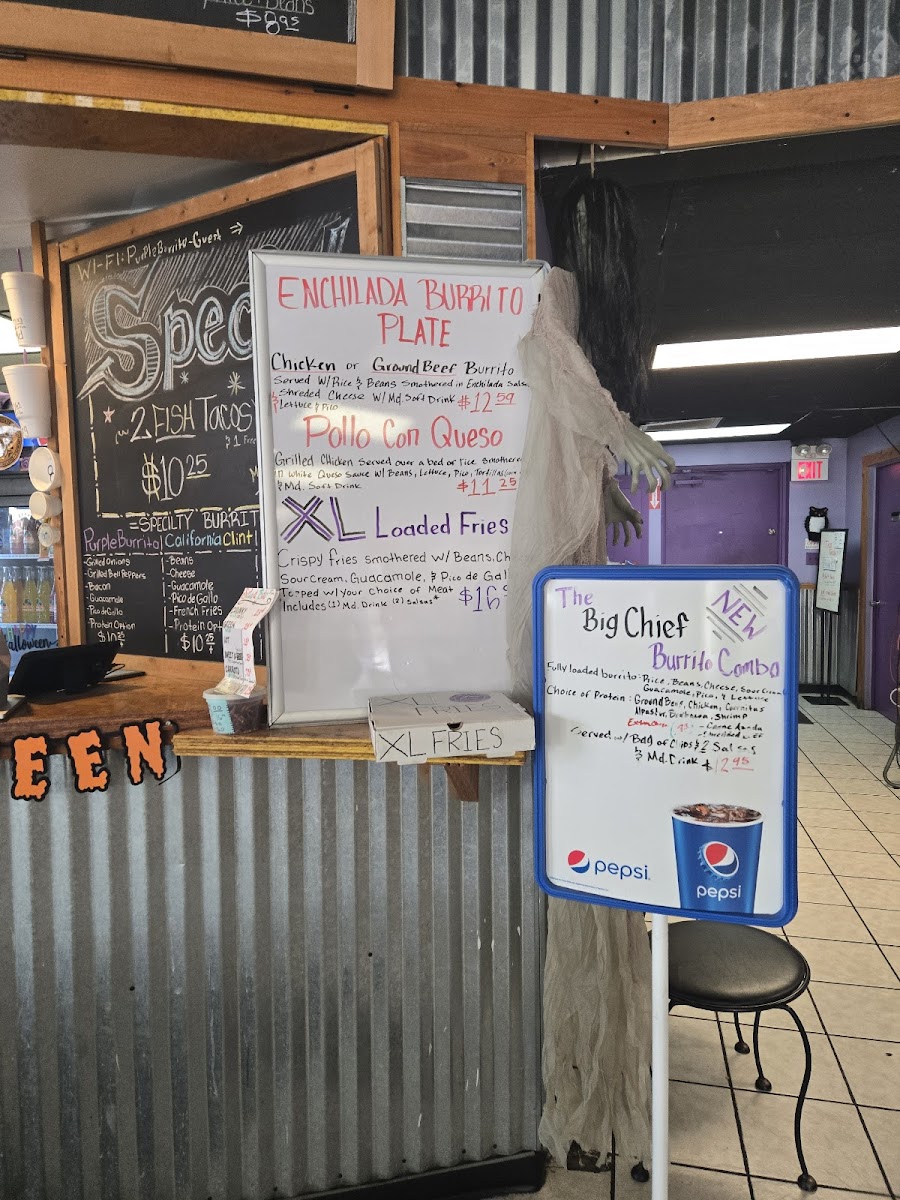 Beans
$8.95
WI-FI: PurpleBurrito-Guest →
Spec
2 FISH TACOS
$10.25
=SPECILTY BURRIT
PurpleBurrito
-Grilled Onions
-Grilled Bell Peppers
-Bacon
-Guacamole
-Pico de Gallo
-Protein Option
California
-Beans
-Cheese
-Guacamole
-Pico de Gallo
-French Fries
-Protein Opti
Clint
ENCHILADA BURRITO
PLATE
Chicken or Ground Beef Burrito
Served W/Rice & Beans Smothered in Enchilada Salsa
& Shreded Cheese W/ Md. Soft Drink $12.59
Lettuce & Pico
Pollo Con Queso
Grilled Chicken Served over a bed of rice smothered
White Queso Sauce W/ Beans, Lettuce, Pico, Tortillas
& Md. Soft Drink $11.25
XL Loaded Fries
Crispy fries smothered W/ Beans, Ch
Sour Cream, Guacamole, & Pico de Gal
Topped W/ your choice of Meat $16
Includes (1) Md. Drink (2) Salsas*
XL FRIES
EEN
EXIT
The
Big Chief
NEW
Burrito Combo
Fully loaded burrito: Rice, Beans, Cheese, Sour Cream
Guacamole, Pico, & Lettuce
Choice of Protein: Ground Beef, Chicken, Carnitas
Alpastor, Barbacoa, Shrimp
Served W/ Bag of Chips & 2 Salsas
& Md. Drink $12.95
pepsi
pepsi